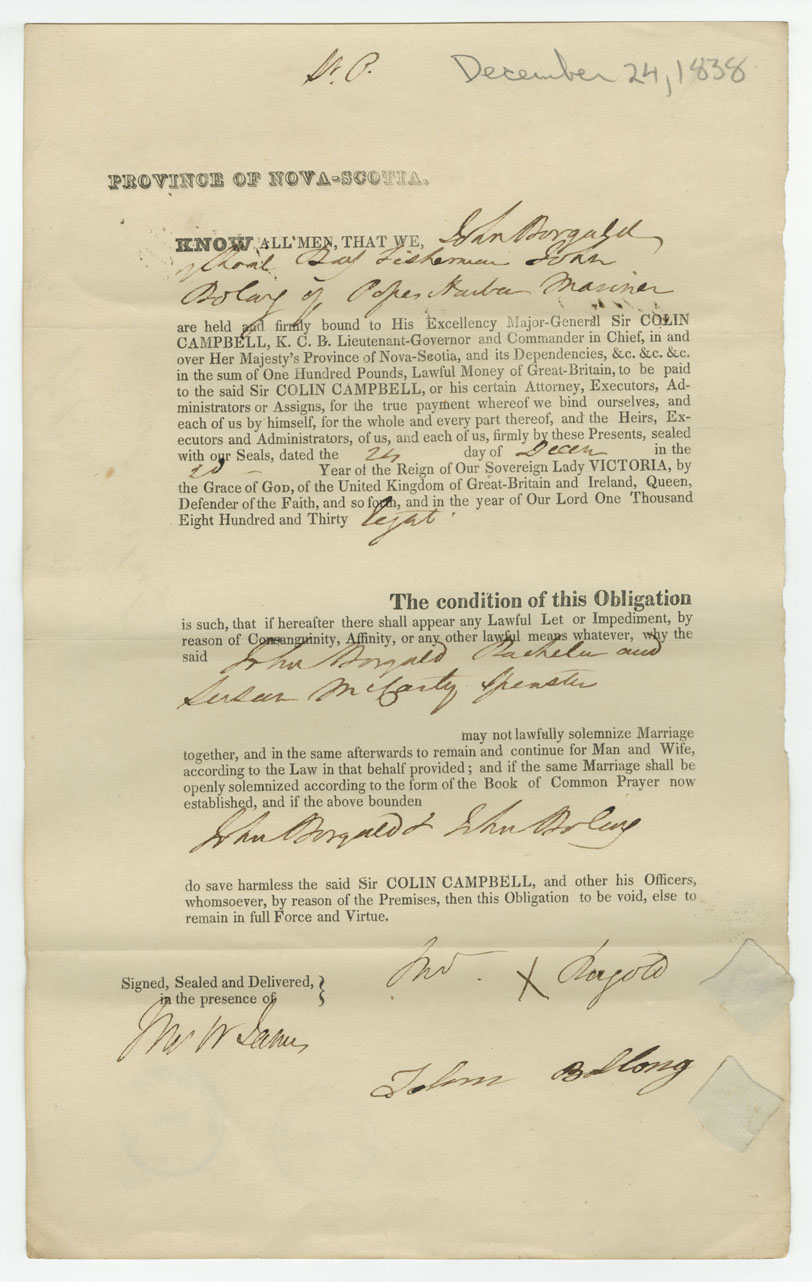 December 24, 1838
PROVINCE OF NOVA-SCOTIA.
KNOW ALL MEN, THAT WE, John Borgald
of Shoal Bay Fisherman John
Bolong of Popes Harbour Mariner
are held and firmly bound to His Excellency Major-General Sir COLIN
CAMPBELL, K. C. B. Lieutenant-Governor and Commander in Chief, in and
over Her Majesty's Province of Nova-Scotia, and its Dependencies, &c. &c. &c.
in the sum of One Hundred Pounds, Lawful Money of Great-Britain, to be paid
to the said Sir COLIN CAMPBELL, or his certain Attorney, Executors, Ad-
ministrators or Assigns, for the true payment whereof we bind ourselves, and
each of us by himself, for the whole and every part thereof, and the Heirs, Ex-
ecutors and Administrators, of us, and each of us, firmly by these Presents, sealed
with our Seals, dated the 24 day of Decem in the
Year of the Reign of Our Sovereign Lady VICTORIA, by
the Grace of GOD, of the United Kingdom of Great-Britain and Ireland, Queen,
Defender of the Faith, and so forth, and in the year of Our Lord One Thousand
Eight Hundred and Thirty Eight
The condition of this Obligation
is such, that if hereafter there shall appear any Lawful Let or Impediment, by
reason of Consanguinity, Affinity, or any other lawful means whatever, why the
said John Borgald Bachelor and
Susan McCarty Spinster
may not lawfully solemnize Marriage
together, and in the same afterwards to remain and continue for Man and Wife,
according to the Law in that behalf provided; and if the same Marriage shall be
openly solemnized according to the form of the Book of Common Prayer now
established, and if the above bounden
John Borgald & John Bolong
do save harmless the said Sir COLIN CAMPBELL, and other his Officers,
whomsoever, by reason of the Premises, then this Obligation to be void, else to
remain in full Force and Virtue.
Signed, Sealed and Delivered,
in the presence of
Jno X Borgold
W James
John Bollong